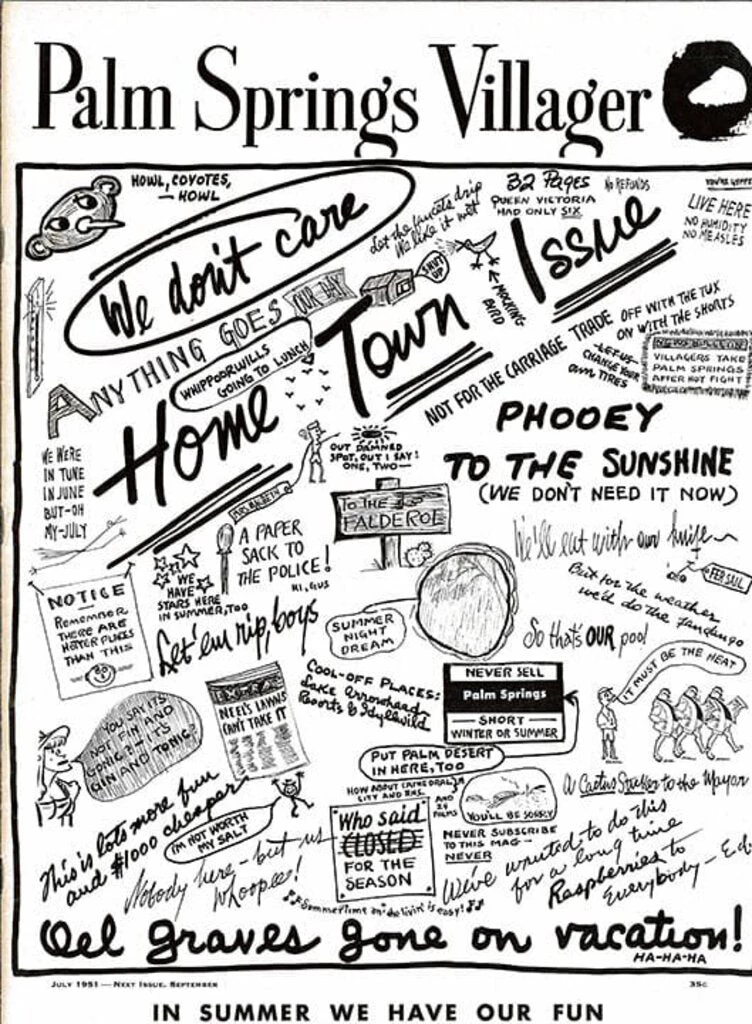 Palm Springs Villager
HOWL, COYOTES,
— HOWL
We don't care
Let the faucets drip
We like it wet
32 Pages
QUEEN VICTORIA
HAD ONLY SIX
NO REFUNDS
LIVE HERE
NO HUMIDITY
NO MEASLES
ANYTHING GOES
OUR DAY
SHUT
UP
MOCKING
BIRD
Home Town Issue
WHIPPOORWILLS
GOING TO LUNCH
NOT FOR THE CARRIAGE TRADE
OFF WITH THE TUX
ON WITH THE SHORTS
—LET US—
CHANGE YOUR
OWN TIRES
VILLAGERS TAKE
PALM SPRINGS
AFTER HOT FIGHT
PHOOEY
TO THE SUNSHINE
(WE DON'T NEED IT NOW)
WE WERE
IN TUNE
IN JUNE
BUT-OH
MY-JULY
OUT DAMNED
SPOT, OUT I SAY!
ONE, TWO—
TO THE
FALDEROL
A PAPER
SACK TO
THE POLICE!
HI, GUS
WE
HAVE
STARS HERE
IN SUMMER, TOO
NOTICE
REMEMBER
THERE ARE
HOTTER PLACES
THAN THIS
Let 'em rip, boys
We'll eat with our knife
But for the weather
we'd do the fandango
FER SAIL
So that's OUR pool
SUMMER
NIGHT
DREAM
IT MUST BE THE HEAT
COOL-OFF PLACES:
Lake Arrowhead
Resorts & Idyllwild
NEVER SELL
Palm Springs
— SHORT —
WINTER OR SUMMER
EXTRA
NEEL'S LAWNS
CAN'T TAKE IT
YOU SAY ITS
NOT FIN AND
GONIC?—ITS
GIN AND TONIC?
PUT PALM DESERT
IN HERE, TOO
HOW ABOUT CATHEDRAL
CITY AND RMS.
AND
29
PALMS
YOU'LL BE SORRY
A Cactus Sticker to the Mayor
This is lots more fun
and $1000 cheaper
I'M NOT WORTH
MY SALT
Who said
CLOSED
FOR THE
SEASON
NEVER SUBSCRIBE
TO THIS MAG—
NEVER
We've wanted to do this
for a long time
Raspberries to
Everybody — Ed.
Nobody here — but us
Whoopee!
Summertime an' the livin' is easy!
Oel graves gone on vacation!
HA-HA-HA
JULY 1951 — NEXT ISSUE, SEPTEMBER
35c
IN SUMMER WE HAVE OUR FUN